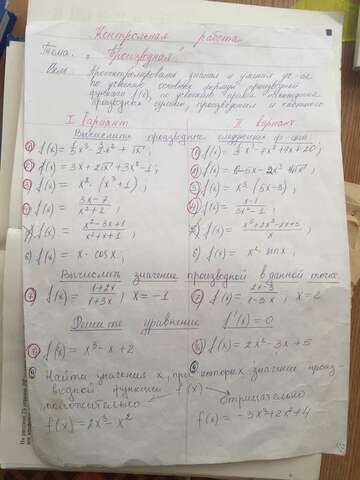 Контрольная работа
Тема: "Производная"
Цель: Проконтролировать знания и умения уч-ся
по усвоению основные формулы производной
функции f(x), по усвоению правил нахождения
производных суммы, произведения и частного
I вариант II вариант
Вычислить производные следующих ф-ций:
1) f(x) = x³ - 2x² + √x; 1) f(x) = x³ - 4x² + 7x + 20;
2) f(x) = 3x + 2√x + 3x³ - 1; 2) f(x) =
3) f(x) = x² (x³ + 1); 3) f(x) = x³ (5x - 3);
4) f(x) = 3x-7/x²+2; 4) f(x) = x-1/3x²-1;
5) f(x) = x²-3x+1/x²+x+1; 5) f(x) =
6) f(x) = x·cosx; 6) f(x) = x² sinx,
Вычислить значение производной в данной точке
7) f(x) = 1+2x/1+3x, x = -1 7) f(x) = 2x-3/1-3x; x = 2
Решите уравнение f'(x) = 0
8) f(x) = x³ - x + 2 8) f(x) = 2x² - 3x + 5
9) Найти значения x, при которых значение произ-
водной функции f(x)
положительно отрицательно
f(x) = 2x³ - x² f(x) = -3x³ + 2x² + 4